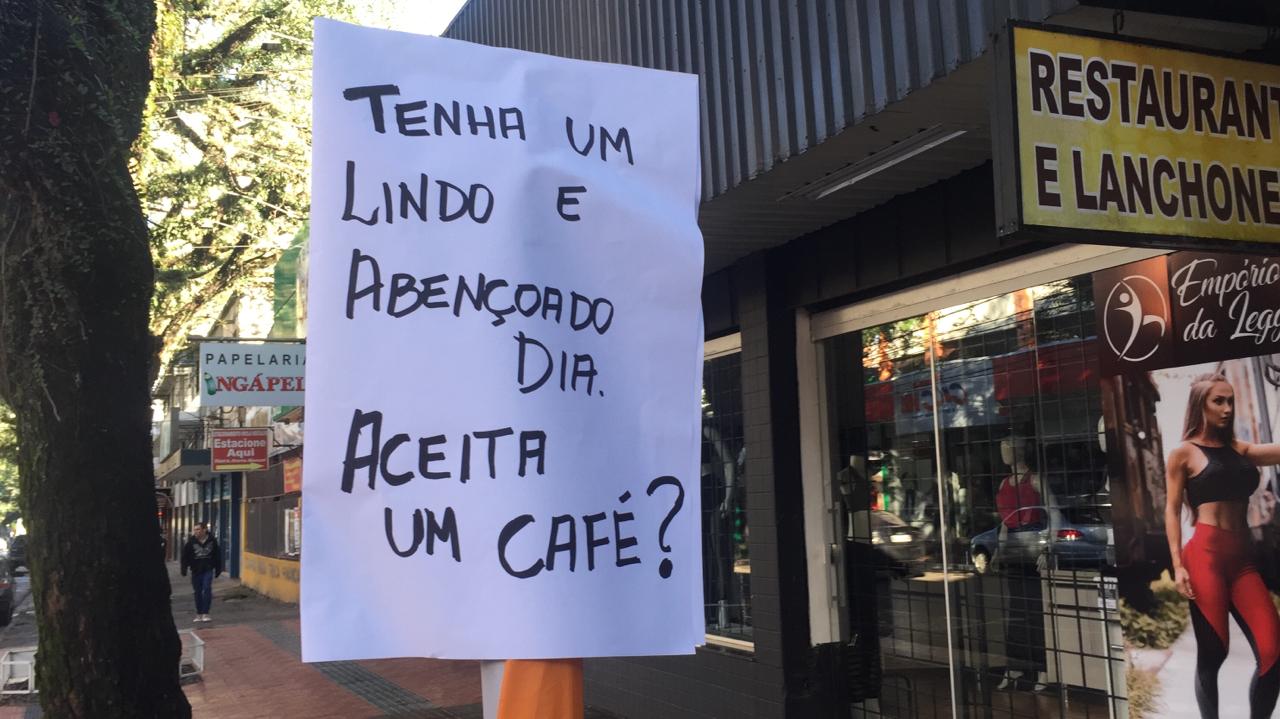 TENHA UM
LINDO E
ABENÇOADO
DIA.
ACEITA
UM CAFÉ?
RESTAURANT
E LANCHONE
Empório
da Legg
PAPELARIA
NGÁPEL
Estacione
Aqui